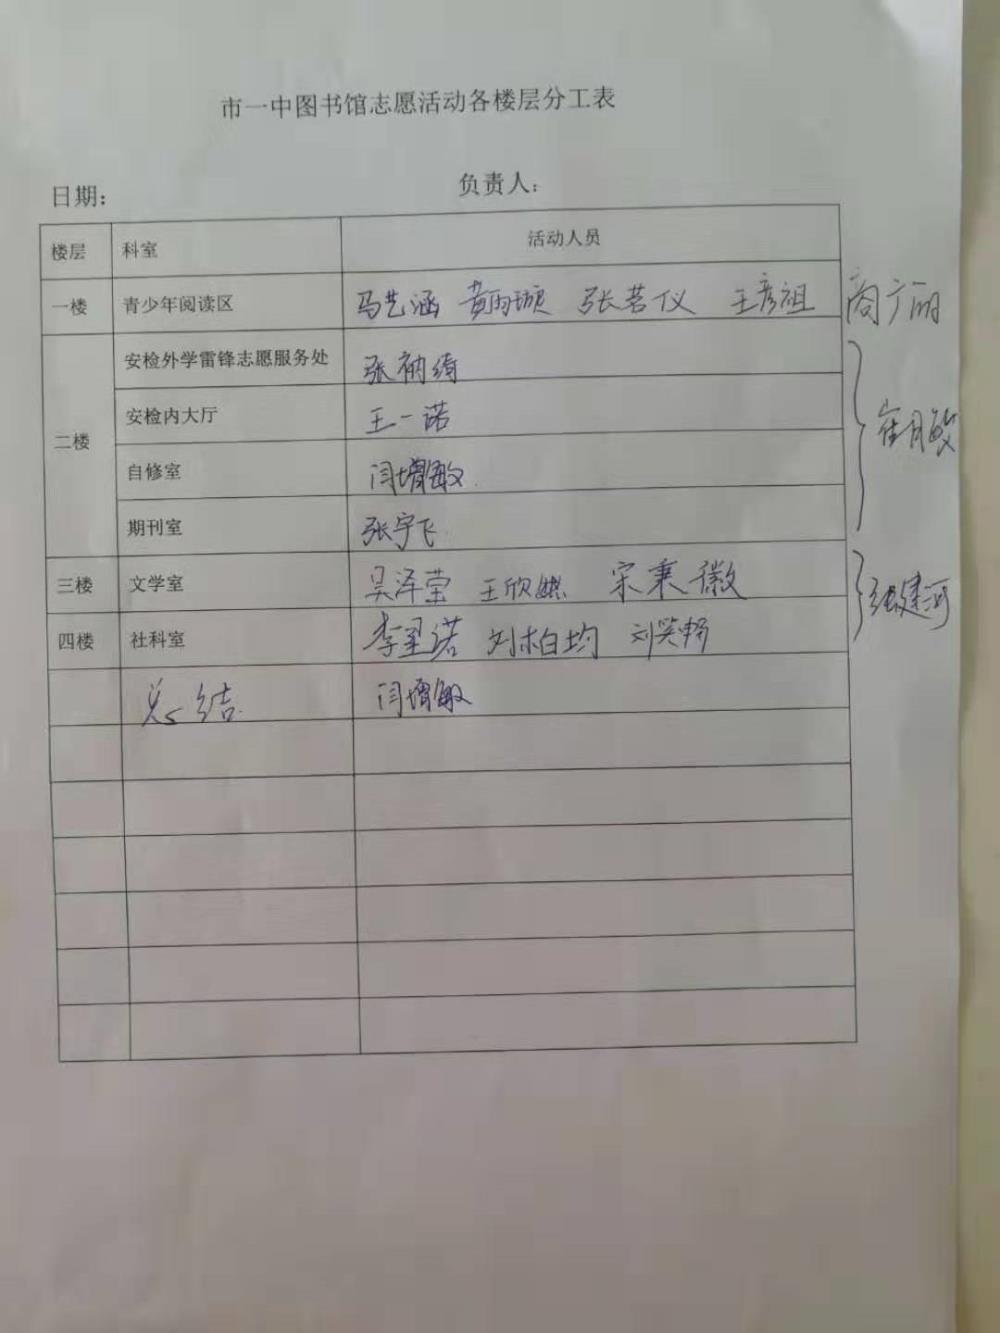 市一中图书馆志愿活动各楼层分工表
日期: 负责人:
楼层 科室 活动人员
一楼 青少年阅读区 马艺涵 黄雨璇 张茗仪 王彦祖 商广丽
二楼
安检外学雷锋志愿服务处 张衲绮
安检内大厅 王一诺
自修室 闫增敏
期刊室 张宇飞
崔月敏
三楼 文学室 吴泽莹 王欣 宋秉徽
四楼 社科室 李星诺 刘柏均 刘笑畅
张建河
总结 闫增敏